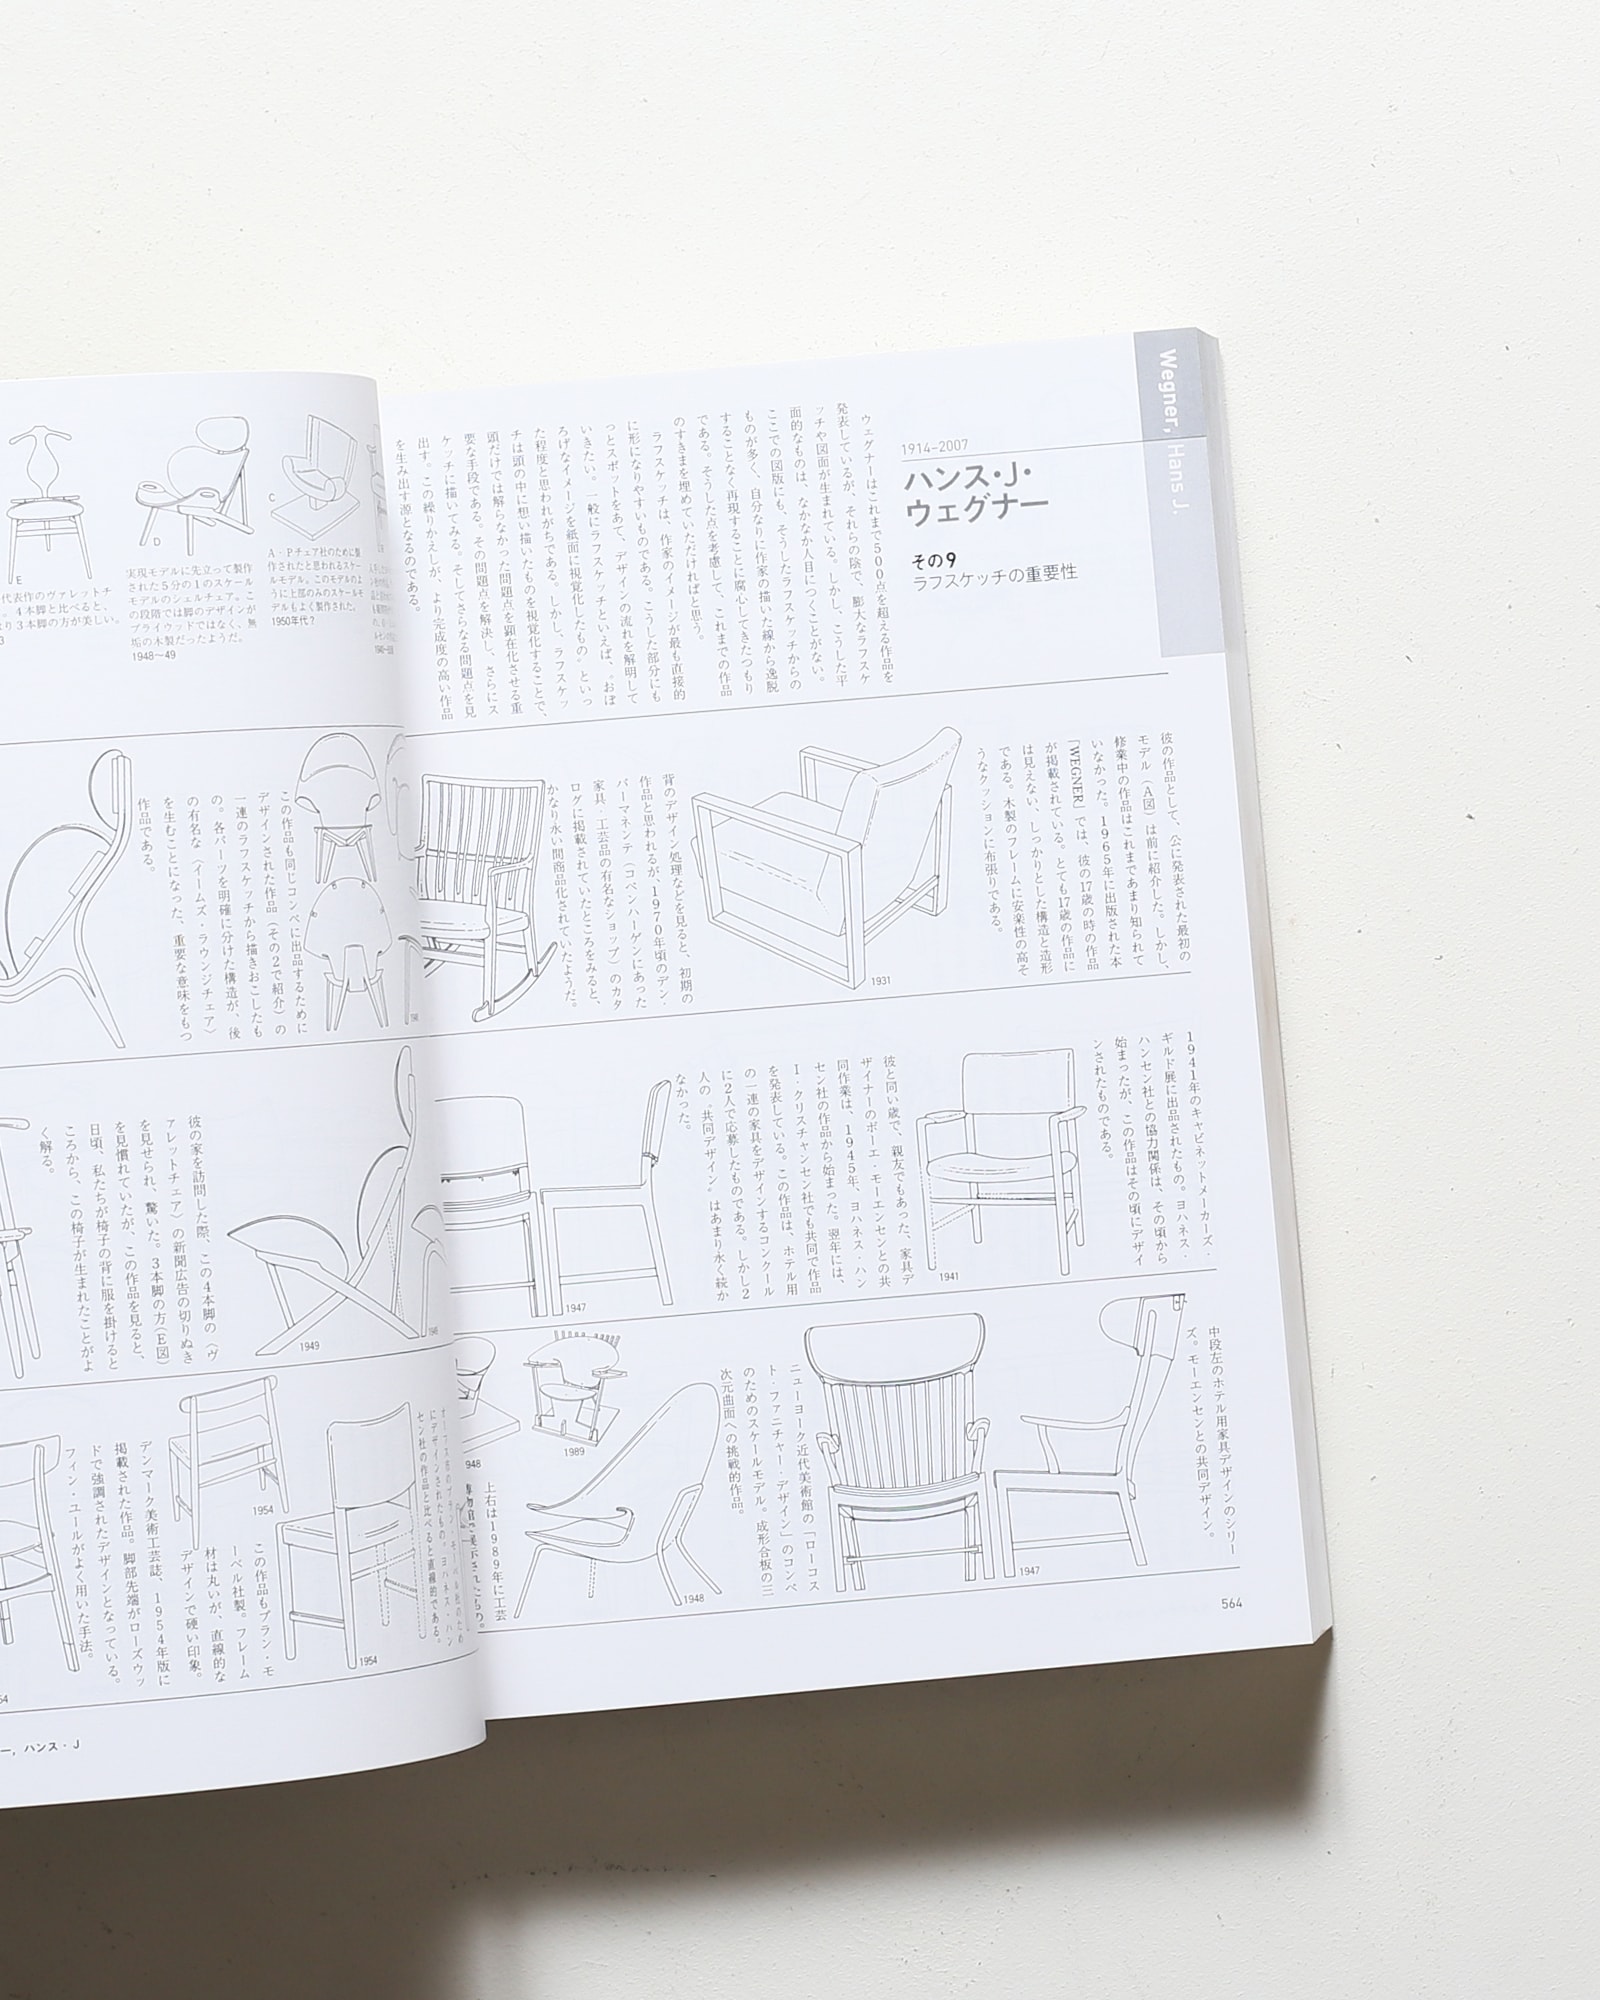 Wegner, Hans J.
1914–2007
ハンス・J・
ウェグナー
その9
ラフスケッチの重要性
ウェグナーはこれまで500点を超える作品を
発表しているが、それらの陰で、膨大なラフスケ
ッチや図面が生まれている。しかし、こうした平
面的なものは、なかなか人目につくことがない。
ここでの図版にも、そうしたラフスケッチからの
ものが多く、自分なりに作家の描いた線から逸脱
することなく再現することに腐心してきたつもり
である。そうした点を考慮して、これまでの作品
のすきまを埋めていただければと思う。
ラフスケッチは、作家のイメージが最も直接的
に形になりやすいものである。こうした部分にも
っとスポットをあて、デザインの流れを解明して
いきたい。一般にラフスケッチといえば、“おぼ
ろげなイメージを紙面に視覚化したもの”といっ
た程度と思われがちである。しかし、ラフスケッ
チは頭の中に想い描いたものを視覚化することで、
頭だけでは解らなかった問題点を顕在化させる重
要な手段である。その問題点を解決し、さらにス
ケッチに描いてみる。そしてさらなる問題点を見
出す。この繰りかえしが、より完成度の高い作品
を生み出す源となるのである。
彼の作品として、公に発表された最初の
モデル（A図）は前に紹介した。しかし、
修業中の作品はこれまであまり知られて
いなかった。1965年に出版された本
「WEGNER」では、彼の17歳の時の作品
が掲載されている。とても17歳の作品に
は見えない、しっかりとした構造と造形
である。木製のフレームに安楽性の高そ
うなクッションに布張りである。
1931
背のデザイン処理などを見ると、初期の
作品と思われるが、1970年頃のデン・
パーマネンテ（コペンハーゲンにあった
家具・工芸品の有名なショップ）のカタ
ログに掲載されていたところをみると、
かなり永い間商品化されていたようだ。
1941年のキャビネットメーカーズ・
ギルド展に出品されたもの。ヨハネス・
ハンセン社との協力関係は、その頃から
始まったが、この作品はその頃にデザイ
ンされたものである。
1941
彼と同い歳で、親友でもあった、家具デ
ザイナーのボーエ・モーエンセンとの共
同作業は、1945年、ヨハネス・ハン
セン社の作品から始まった。翌年には、
I・クリスチャンセン社でも共同で作品
を発表している。この作品は、ホテル用
の一連の家具をデザインするコンクール
に2人で応募したものである。しかし2
人の“共同デザイン”はあまり永く続か
なかった。
1947
中段左のホテル用家具デザインのシリー
ズ。モーエンセンとの共同デザイン。
1947
ニューヨーク近代美術館の「ローコス
ト・ファニチャー・デザイン」のコンペ
のためのスケールモデル。成形合板の三
次元曲面への挑戦的作品。
1948
1989
948
上右は1989年に工芸
564
C
A・Pチェア社のために製
作されたと思われるスケー
ルモデル。このモデルのよ
うに上部のみのスケールモ
デルもよく製作された。
1950年代？
D
実現モデルに先立って製作
された5分の1のスケール
モデルのシェルチェア。こ
の段階では脚のデザインが
プライウッドではなく、無
垢の木製だったようだ。
1948～49
E
代表作のヴァレットチ
。4本脚と比べると、
り3本脚の方が美しい。
3
この作品も同じコンペに出品するために
デザインされた作品（その2で紹介）の
一連のラフスケッチから描きおこしたも
の。各パーツを明確に分けた構造が、後
の有名な〈イームズ・ラウンジチェア〉
を生むことになった、重要な意味をもつ
作品である。
彼の家を訪問した際、この4本脚の〈ヴ
ァレットチェア〉の新聞広告の切りぬき
を見せられ、驚いた。3本脚の方（E図）
を見慣れていたが、この作品を見ると、
日頃、私たちが椅子の背に服を掛けると
ころから、この椅子が生まれたことがよ
く解る。
1949
この作品もプラン・モ
ーベル社製。フレーム
材は丸いが、直線的な
デザインで硬い印象。
1954
1954
デンマーク美術工芸誌、1954年版に
掲載された作品。脚部先端がローズウッ
ドで強調されたデザインとなっている。
フィン・ユールがよく用いた手法。
54
ー，ハンス・J